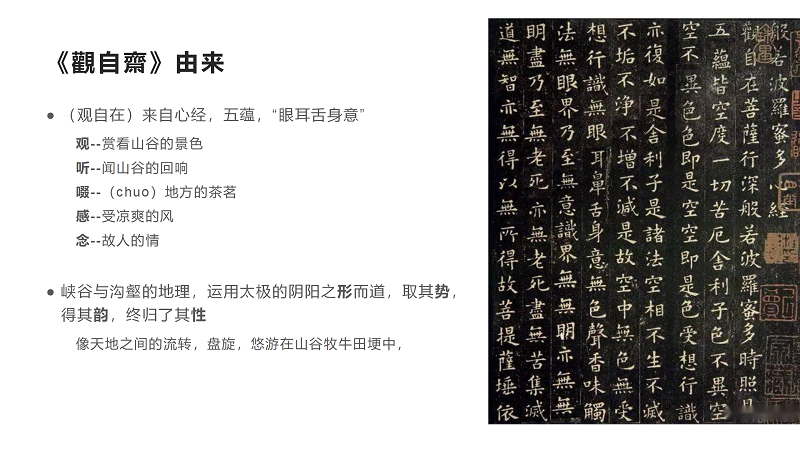 《觀自齋》由来
（观自在）来自心经，五蕴，“眼耳舌身意”
观--赏看山谷的景色
听--闻山谷的回响
啜--（chuo）地方的茶茗
感--受凉爽的风
念--故人的情
峡谷与沟壑的地理，运用太极的阴阳之形而道，取其势，
得其韵，终归了其性
像天地之间的流转，盘旋，悠游在山谷牧牛田埂中，
般若波羅蜜多心經
觀自在菩薩行深般若波羅蜜多時照見
五蘊皆空度一切苦厄舍利子色不異空
空不異色色即是空空即是色受想行識
亦復如是舍利子是諸法空相不生不滅
不垢不淨不增不減是故空中無色無受
想行識無眼耳鼻舌身意無色聲香味觸
法無眼界乃至無意識界無無明亦無無
明盡乃至無老死亦無老死盡無苦集滅
道無智亦無得以無所得故菩提薩埵依